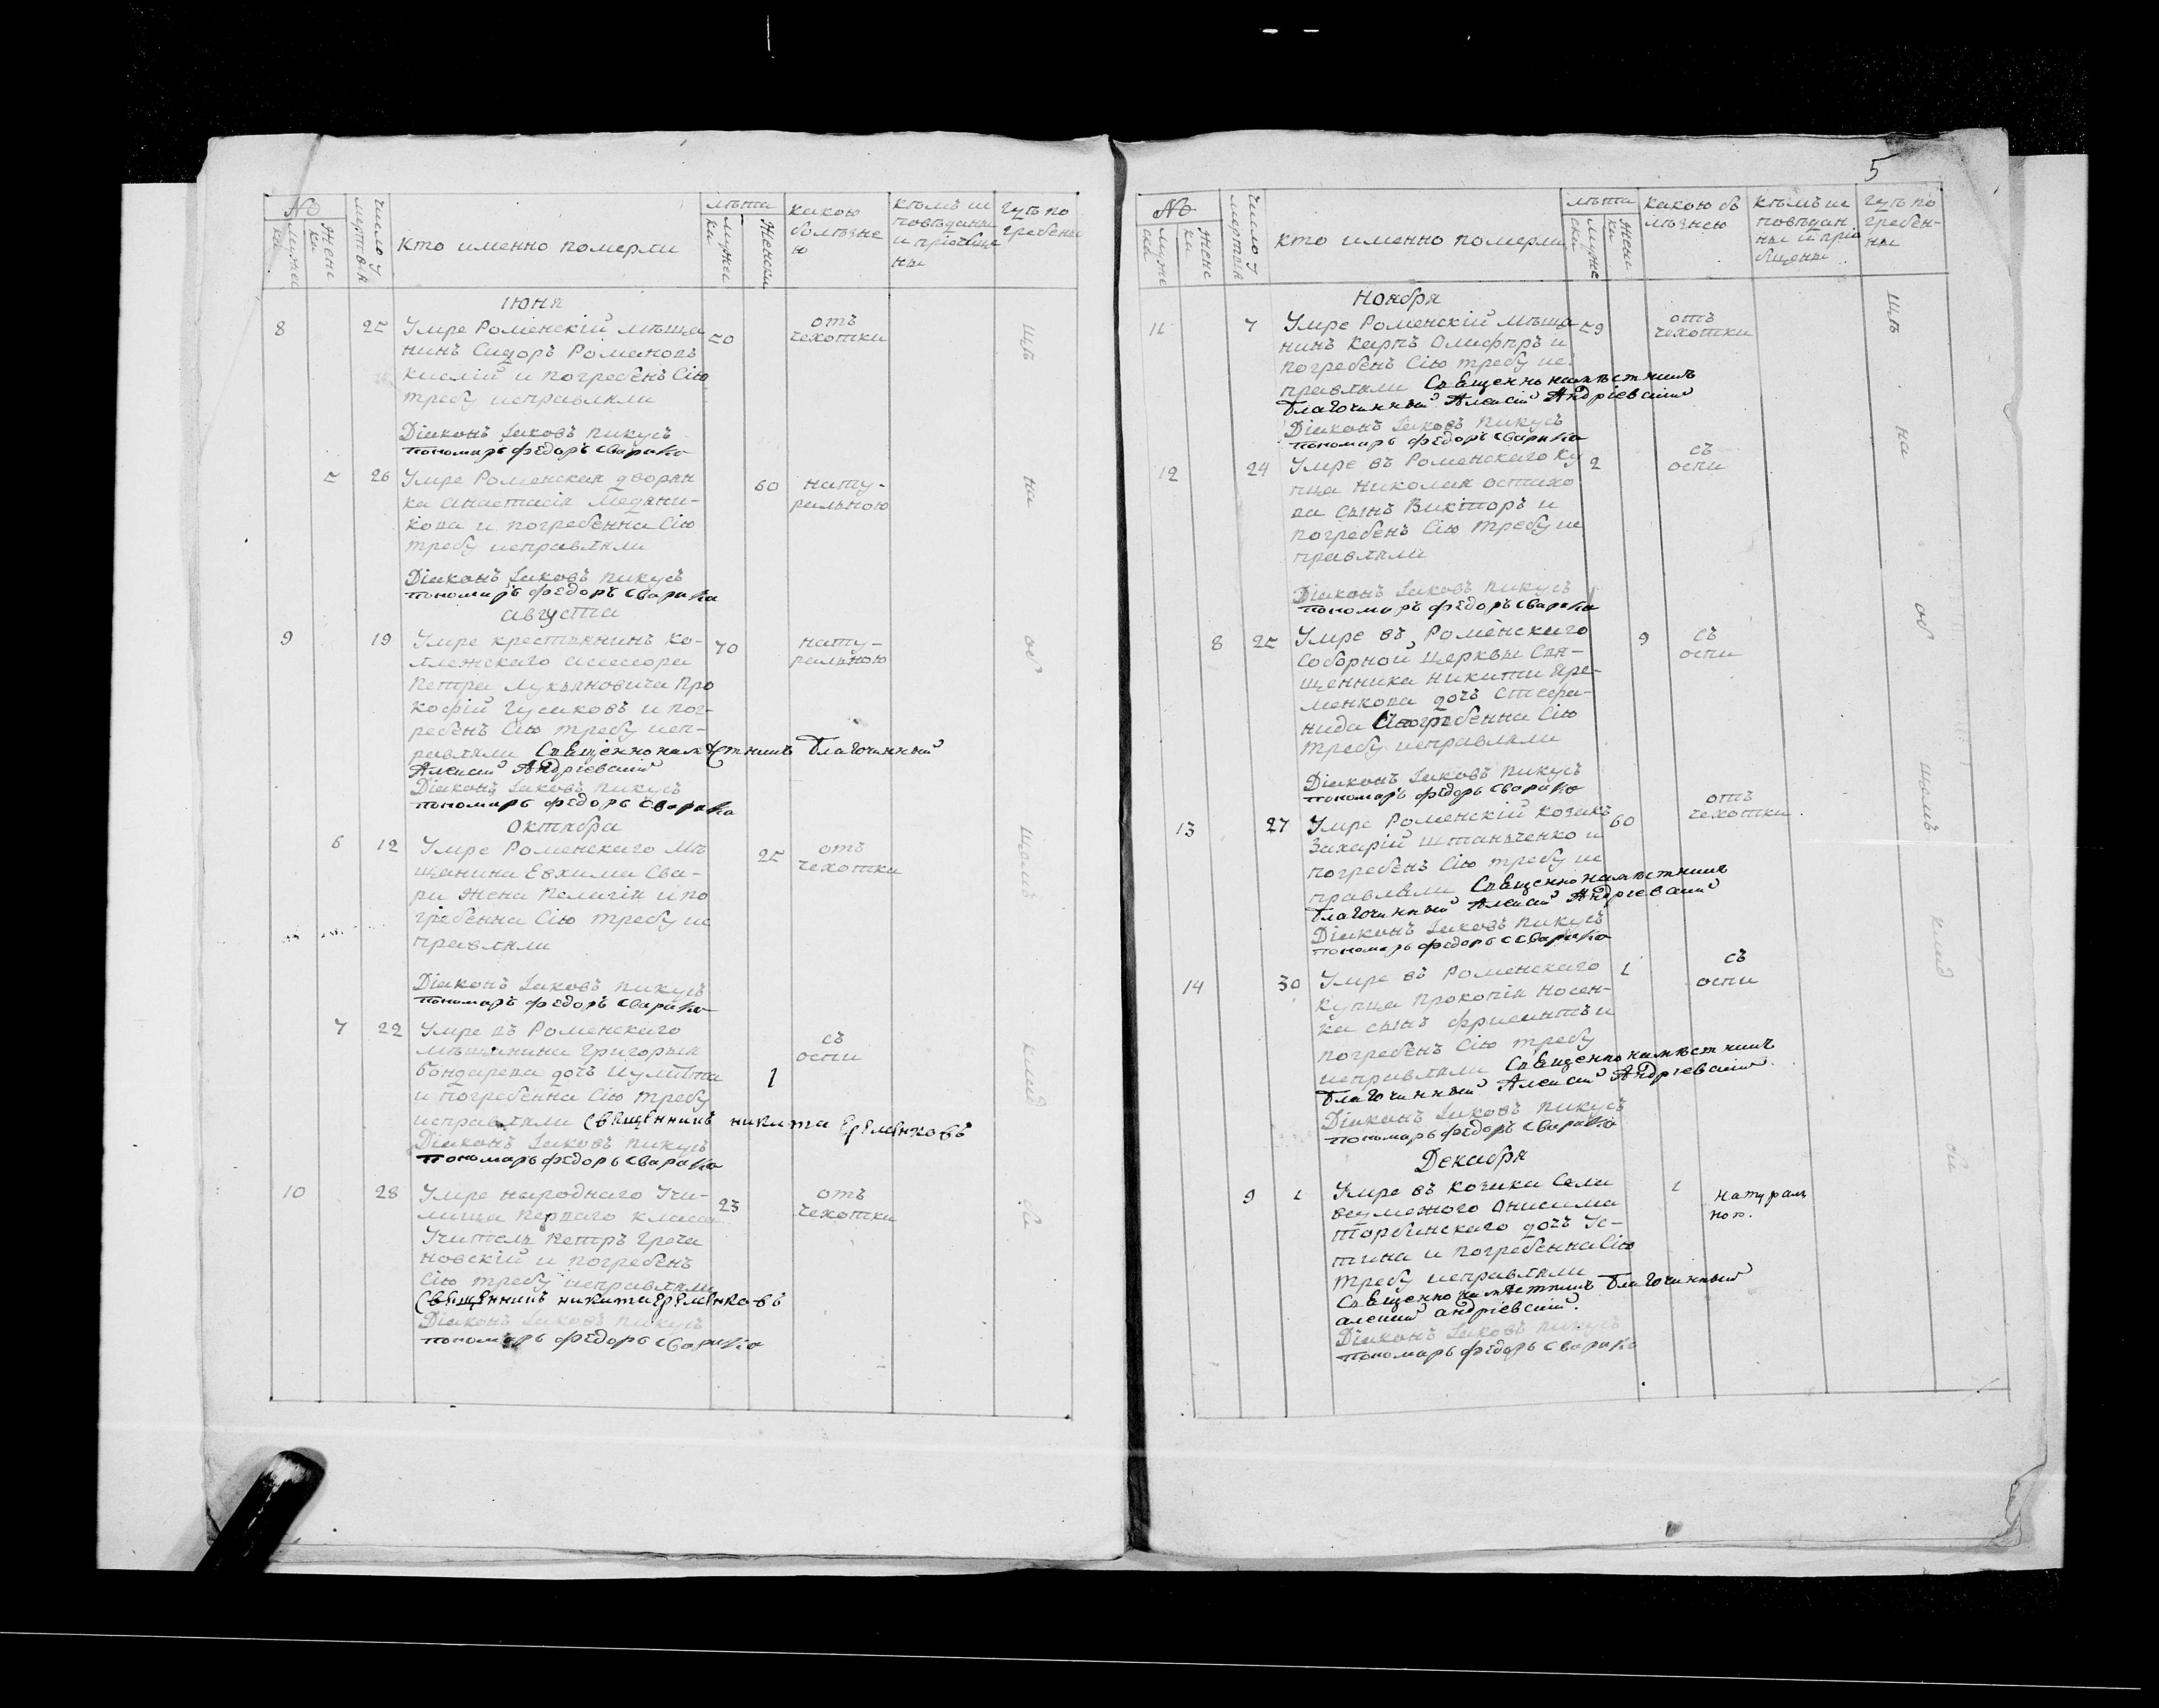 №
мужес
ка
женс
ка
число у
мертвія
кто именно померли
лѣта
мужес
ка
женски
какою
болѣзне
ю
кѣмъ ис
повѣданы
и пріобще
ны
гдѣ по
гребены
Іюня
8
25
Умре Роменскій мѣща
нинъ Сидоръ Романовъ
и погребенъ Сію
требу исправляли
50
отъ
чехотки
Діаконъ Іаковъ Пикусъ
пономарь Федоръ Сварика
5
26
Умре Роменская дворян
ка Анастасія
кова и погребенна Сію
требу исправляли
60
нату-
ральною
Діаконъ Іаковъ Пикусъ
пономарь Федоръ Сварика
Августа
9
19
Умре крестьянинъ Ко-
лежскаго Асессора
Петра Лукьяновича Про
кофій Гусаковъ и пог-
ребенъ Сію требу исп-
равляли Священнонамѣстникъ Благочинный
Алексій Андріевскій
70
нату-
ральною
Діаконъ Іаковъ Пикусъ
пономарь Федоръ Сварика
Октября
6
12
Умре Роменскаго Мѣ
щанина Евхима Сва-
ри жена Пелагія и по
гребенна Сію требу ис
правляли
25
отъ
чехотки
Діаконъ Іаковъ Пикусъ
пономарь Федоръ Сварика
7
22
Умре въ Роменскаго
мѣщанина Григорыя
Бондарева дочъ Иулита
и погребенна Сію требу
исправляли Священникъ Никита Еременковъ
1
съ
оспи
Діаконъ Іаковъ Пикусъ
пономарь Федоръ Сварика
10
28
Умре народнаго Учи-
лища Перваго класса
Учитель Петръ Греча
новскій и погребенъ
Сію требу исправляли
Священникъ Никита Еременковъ
23
отъ
чехотки
Діаконъ Іаковъ Пикусъ
пономарь Федоръ Сварика
на об щомъ клад би
5
№
мужес
ска
женс
ка
число у
мертвія
кто именно померли
лѣта
мужес
ска
женс
ка
какою бо
лѣзнею
кѣмъ ис
повѣдан
ны и пріо
бщены
гдѣ по
гребен-
ны
Ноября
11
7
Умре Роменскій мѣща
нинъ Карпъ Олифѣръ и
погребенъ Сію требу ис
правляли Священнонамѣстникъ
Благочинный Алексій Андріевскій
59
отъ
чехотки
Діаконъ Іаковъ Пикусъ
пономарь Федоръ Сварика
12
24
Умре въ Роменскаго ку
пца Николая Остахо
ва сынъ Викторъ и
погребенъ Сію требу ис
правляли
2
съ
оспи
Діаконъ Іаковъ Пикусъ
пономарь Федоръ Сварика
8
25
Умре въ Роменскаго
Соборной Церкви Свя-
щенника Никити Яре-
менкова дочъ Стефа-
нида и погребенна Сію
требу исправляли
9
съ
оспи
Діаконъ Іаковъ Пикусъ
пономарь Федоръ Сварика
13
27
Умре Роменскій козакъ
Захарій Штаньченко и
погребенъ Сію требу ис
правляли Священнонамѣстникъ
Благочинный Алексій Андріевскій
60
отъ
чехотки
Діаконъ Іаковъ Пикусъ
пономарь Федоръ Сварика
14
30
Умре въ Роменскаго
купца Прокопія Носен-
ка сынъ и
погребенъ Сію требу
исправляли Священнонамѣстникъ
Благочинный Алексій Андріевскій
1
съ
оспи
Діаконъ Іаковъ Пикусъ
пономарь Федоръ Сварика
Декабря
9
1
Умре въ козака Села
Онисима
Торбинскаго дочъ Ус-
тина и погребенна Сію
требу исправляли
Священнонамѣстникъ Благочинный
Алексій Андріевскій.
1
натураль
ною.
Діаконъ Іаковъ Пикусъ
пономарь Федоръ Сварика
на об щомъ клад би